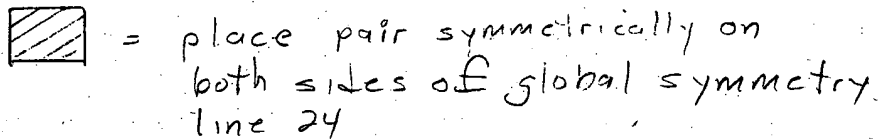 = place pair symmetrically on
both sides of global symmetry
line 24